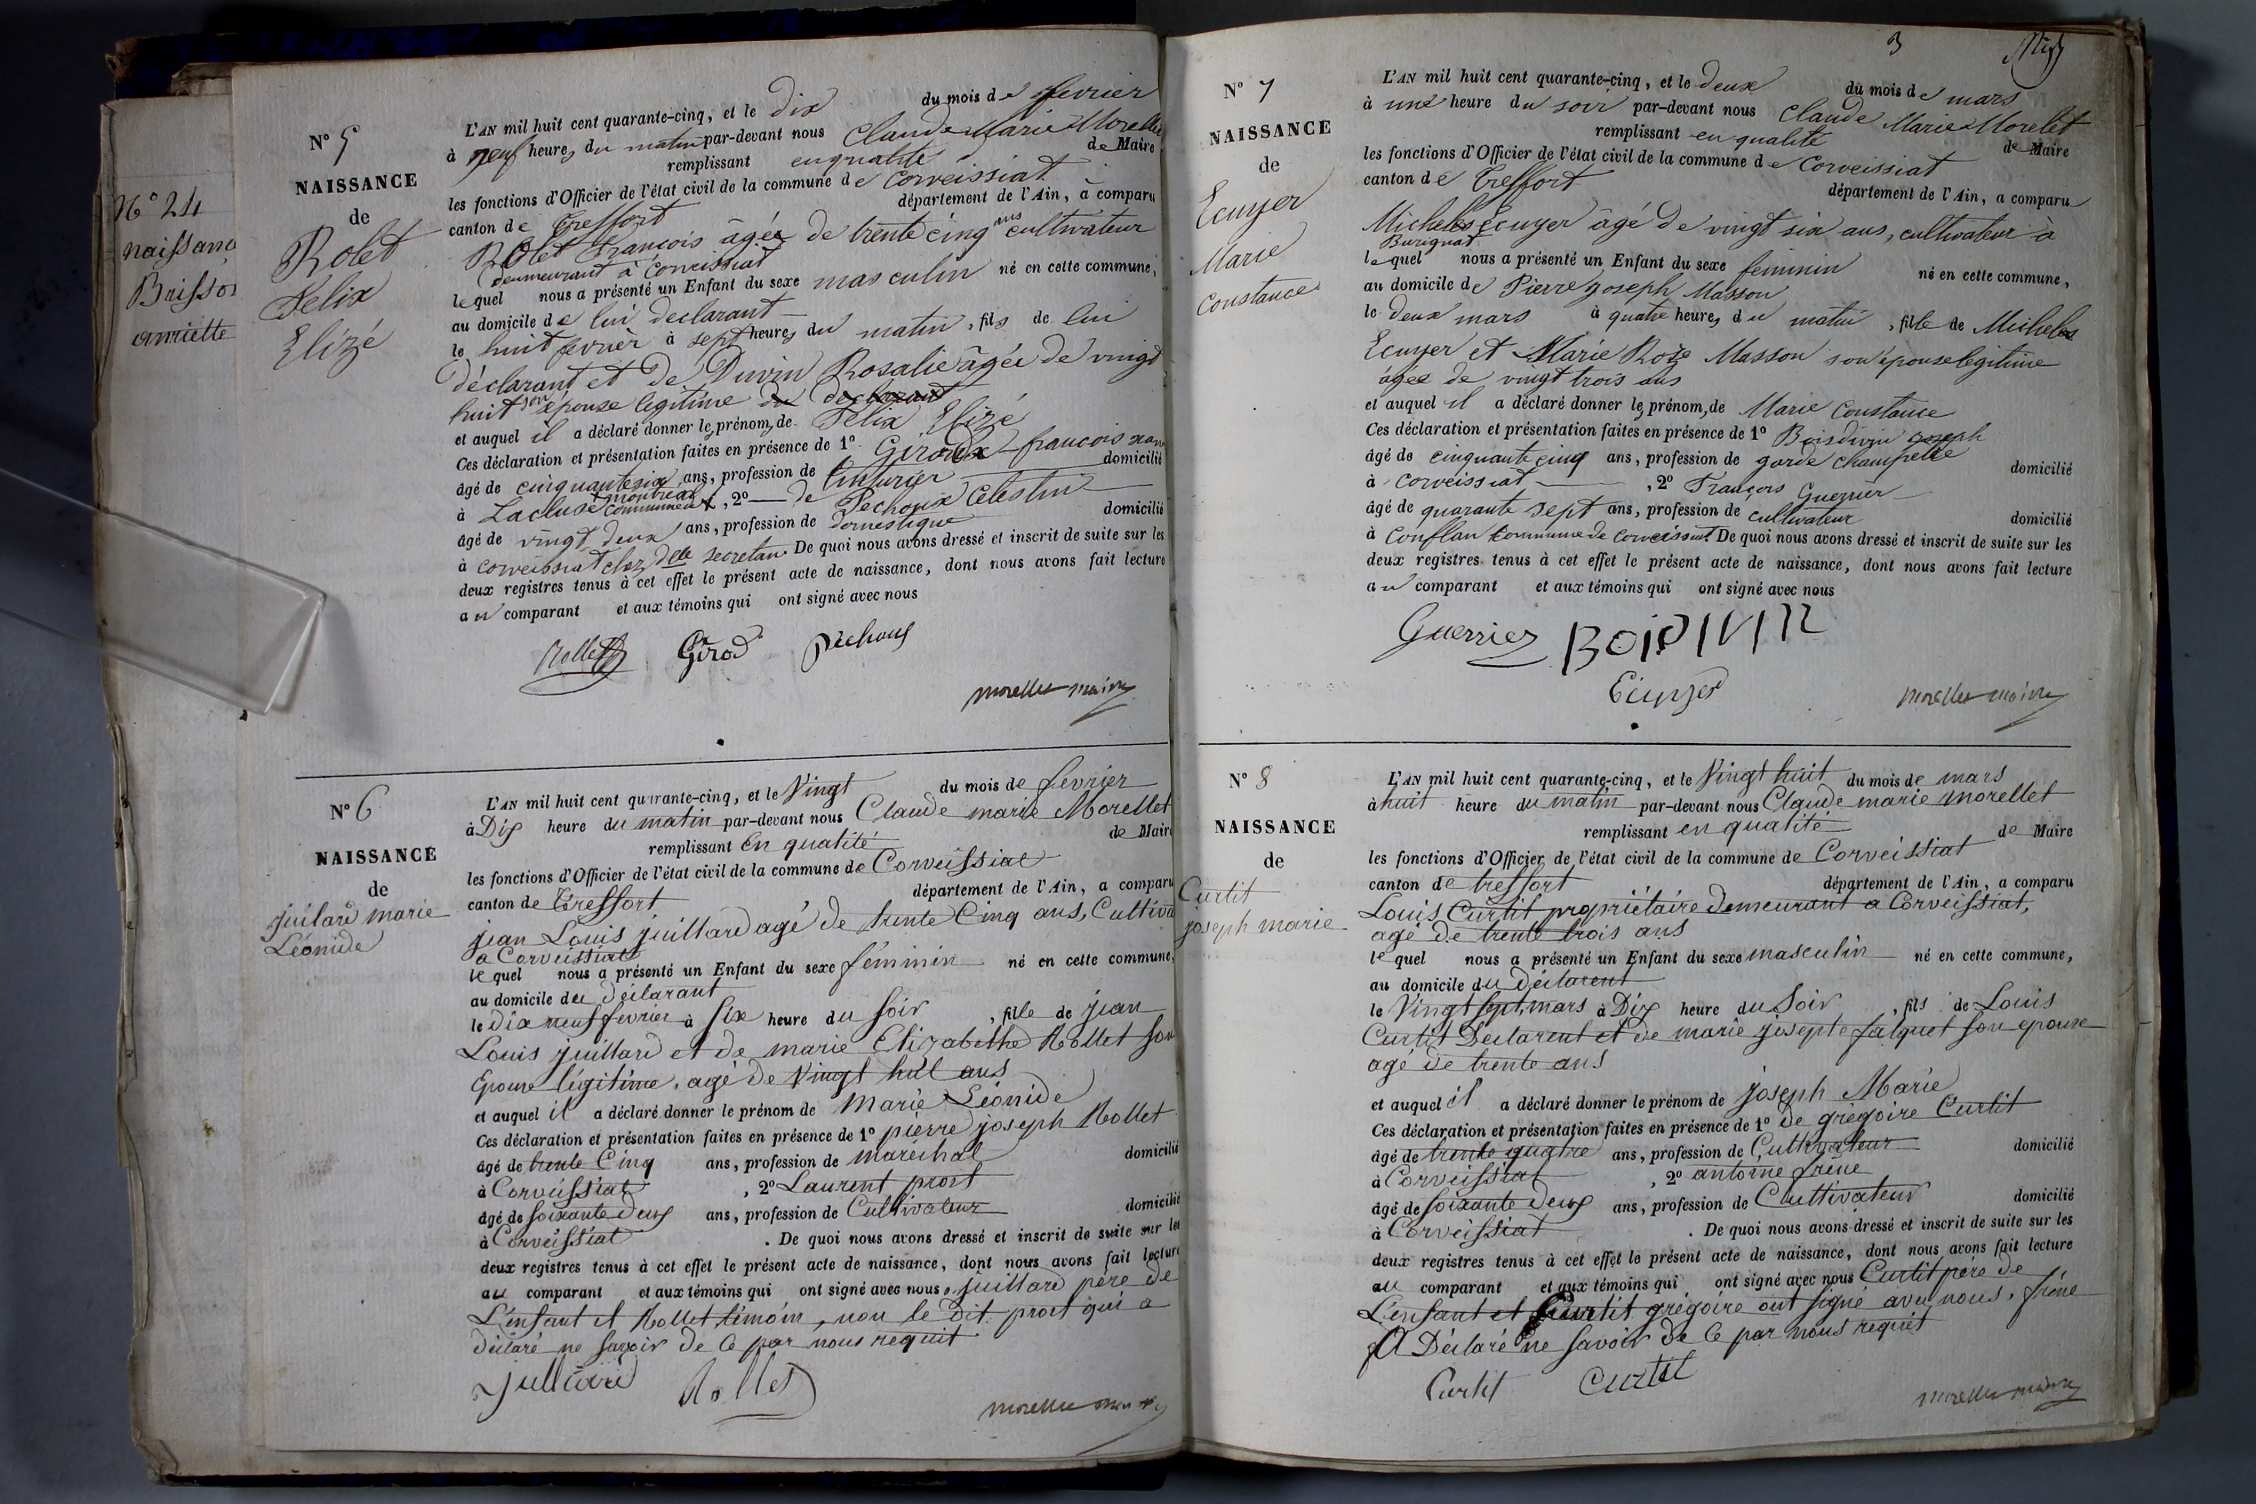 N° 24
naissanc
Brisso
anriette
N° 5
NAISSANCE
de
Rolet
Felix
Elizé
L'AN mil huit cent quarante-cinq, et le dix du mois de fevrier
à neuf heures du matin par-devant nous Claude Marie Morellet
remplissant en qualité de Maire
les fonctions d'Officier de l'état civil de la commune de Corveissiat
canton de Treffort département de l'Ain, a comparu
Rolet François âgée de trente cinq ans cultivateur
demeurant à Corveissiat
lequel nous a présenté un Enfant du sexe masculin né en cette commune,
au domicile de lui declarant
le huit fevrier à sept heures du matin, fils de lui
déclarant et de Duvin Rosalie âgée de vingt
huit son épouse legitime du declarant
et auquel il a déclaré donner les prénoms de Félix Elizé
Ces déclaration et présentation faites en présence de 1° Giroux françois
âgé de cinquante six ans, profession de domicilié
à Lacluse communeal montréal, 2° de Pechoux Celestin
âgé de vingt deux ans, profession de domestique domicilié
à corveissiat chez delle secretan. De quoi nous avons dressé et inscrit de suite sur les
deux registres tenus à cet effet le présent acte de naissance, dont nous avons fait lecture
au comparant et aux témoins qui ont signé avec nous
Rollet Girod Pechoux
morellet maire
N° 6
NAISSANCE
de
juilard marie
Léonide
L'AN mil huit cent quarante-cinq, et le Vingt du mois de fevrier
à Dix heure du matin par-devant nous Claude marie Morellet
remplissant En qualité de Maire
les fonctions d'Officier de l'état civil de la commune de Corveissiat
canton de Treffort département de l'Ain, a comparu
jean Louis juillard agé de trente Cinq ans, Cultiva
a Corveissiat
lequel nous a présenté un Enfant du sexe féminin né en cette commune,
au domicile du déclarant
le dix neuf fevrier à Six heure du Soir, fille de jean
Louis juillard et de marie Elizabethe Rollet son
Epouse légitime. agé de Vingt huit ans
et auquel il a déclaré donner le prénom de Marie Léonide
Ces déclaration et présentation faites en présence de 1° pierre joseph Rollet
âgé de trente Cinq ans, profession de maréchal domicilié
à Corveissiat, 2° Laurent prost
âgé de soixante deux ans, profession de Cultivateur domicilié
à Corveissiat. De quoi nous avons dressé et inscrit de suite sur les
deux registres tenus à cet effet le présent acte de naissance, dont nous avons fait lecture
au comparant et aux témoins qui ont signé avec nous. juillard père de
L'enfant et Rollet témoin, non le dit prost qui a
déclaré ne savoir de ce par nous requit
Julliard Rollet
morellet maire
3
N° 7
NAISSANCE
de
Ecuyer
Marie
Constance
L'AN mil huit cent quarante-cinq, et le deux du mois de mars
à une heure du soir par-devant nous Claude Marie Morelet
remplissant en qualité de Maire
les fonctions d'Officier de l'état civil de la commune de Corveissiat
canton de Treffort département de l'Ain, a comparu
Michel Ecuyer âgé de vingt six ans, cultivateur à
Burignat
lequel nous a présenté un Enfant du sexe feminin né en cette commune,
au domicile de Pierre joseph Masson
le deux mars à quatre heures du matin, fille de Michel
Ecuyer et Marie Roze Masson son épouse legitime
âgée de vingt trois ans
et auquel il a déclaré donner les prénoms de Marie Constance
Ces déclaration et présentation faites en présence de 1° Boisdivin joseph
âgé de cinquante cinq ans, profession de garde champetre domicilié
à corveissiat, 2° François Guerrier
âgé de quarante sept ans, profession de cultivateur domicilié
à Conflan commune de corveissiat De quoi nous avons dressé et inscrit de suite sur les
deux registres tenus à cet effet le présent acte de naissance, dont nous avons fait lecture
au comparant et aux témoins qui ont signé avec nous
Guerrier
Ecuyer
morellet maire
N° 8
NAISSANCE
de
Curtit
joseph marie
L'AN mil huit cent quarante-cinq, et le Vingt huit du mois de mars
à huit heure du matin par-devant nous Claude marie morellet
remplissant en qualité de Maire
les fonctions d'Officier de l'état civil de la commune de Corveissiat
canton de treffort département de l'Ain, a comparu
Louis Curtit propriétaire demeurant a Corveissiat,
agé de trente trois ans
lequel nous a présenté un Enfant du sexe masculin né en cette commune,
au domicile du déclarent
le Vingt sept mars à Dix heure du Soir, fils de Louis
Curtit Declarent et de marie josepte falquet son epouse
agé de trente ans
et auquel il a déclaré donner le prénom de joseph Marie
Ces déclaration et présentation faites en présence de 1° de grégoire Curtit
âgé de trente quatre ans, profession de Cultivateur domicilié
à Corveissiat, 2° antoine frène
âgé de soixante deux ans, profession de Cultivateur domicilié
à Corveissiat. De quoi nous avons dressé et inscrit de suite sur les
deux registres tenus à cet effet le présent acte de naissance, dont nous avons fait lecture
au comparant et aux témoins qui ont signé avec nous Curtit père de
L'enfant et Curtit grégoire ont signé avec nous. frène
A Déclaré ne savoir de ce par nous requit
Curtit Curtit
morellet maire